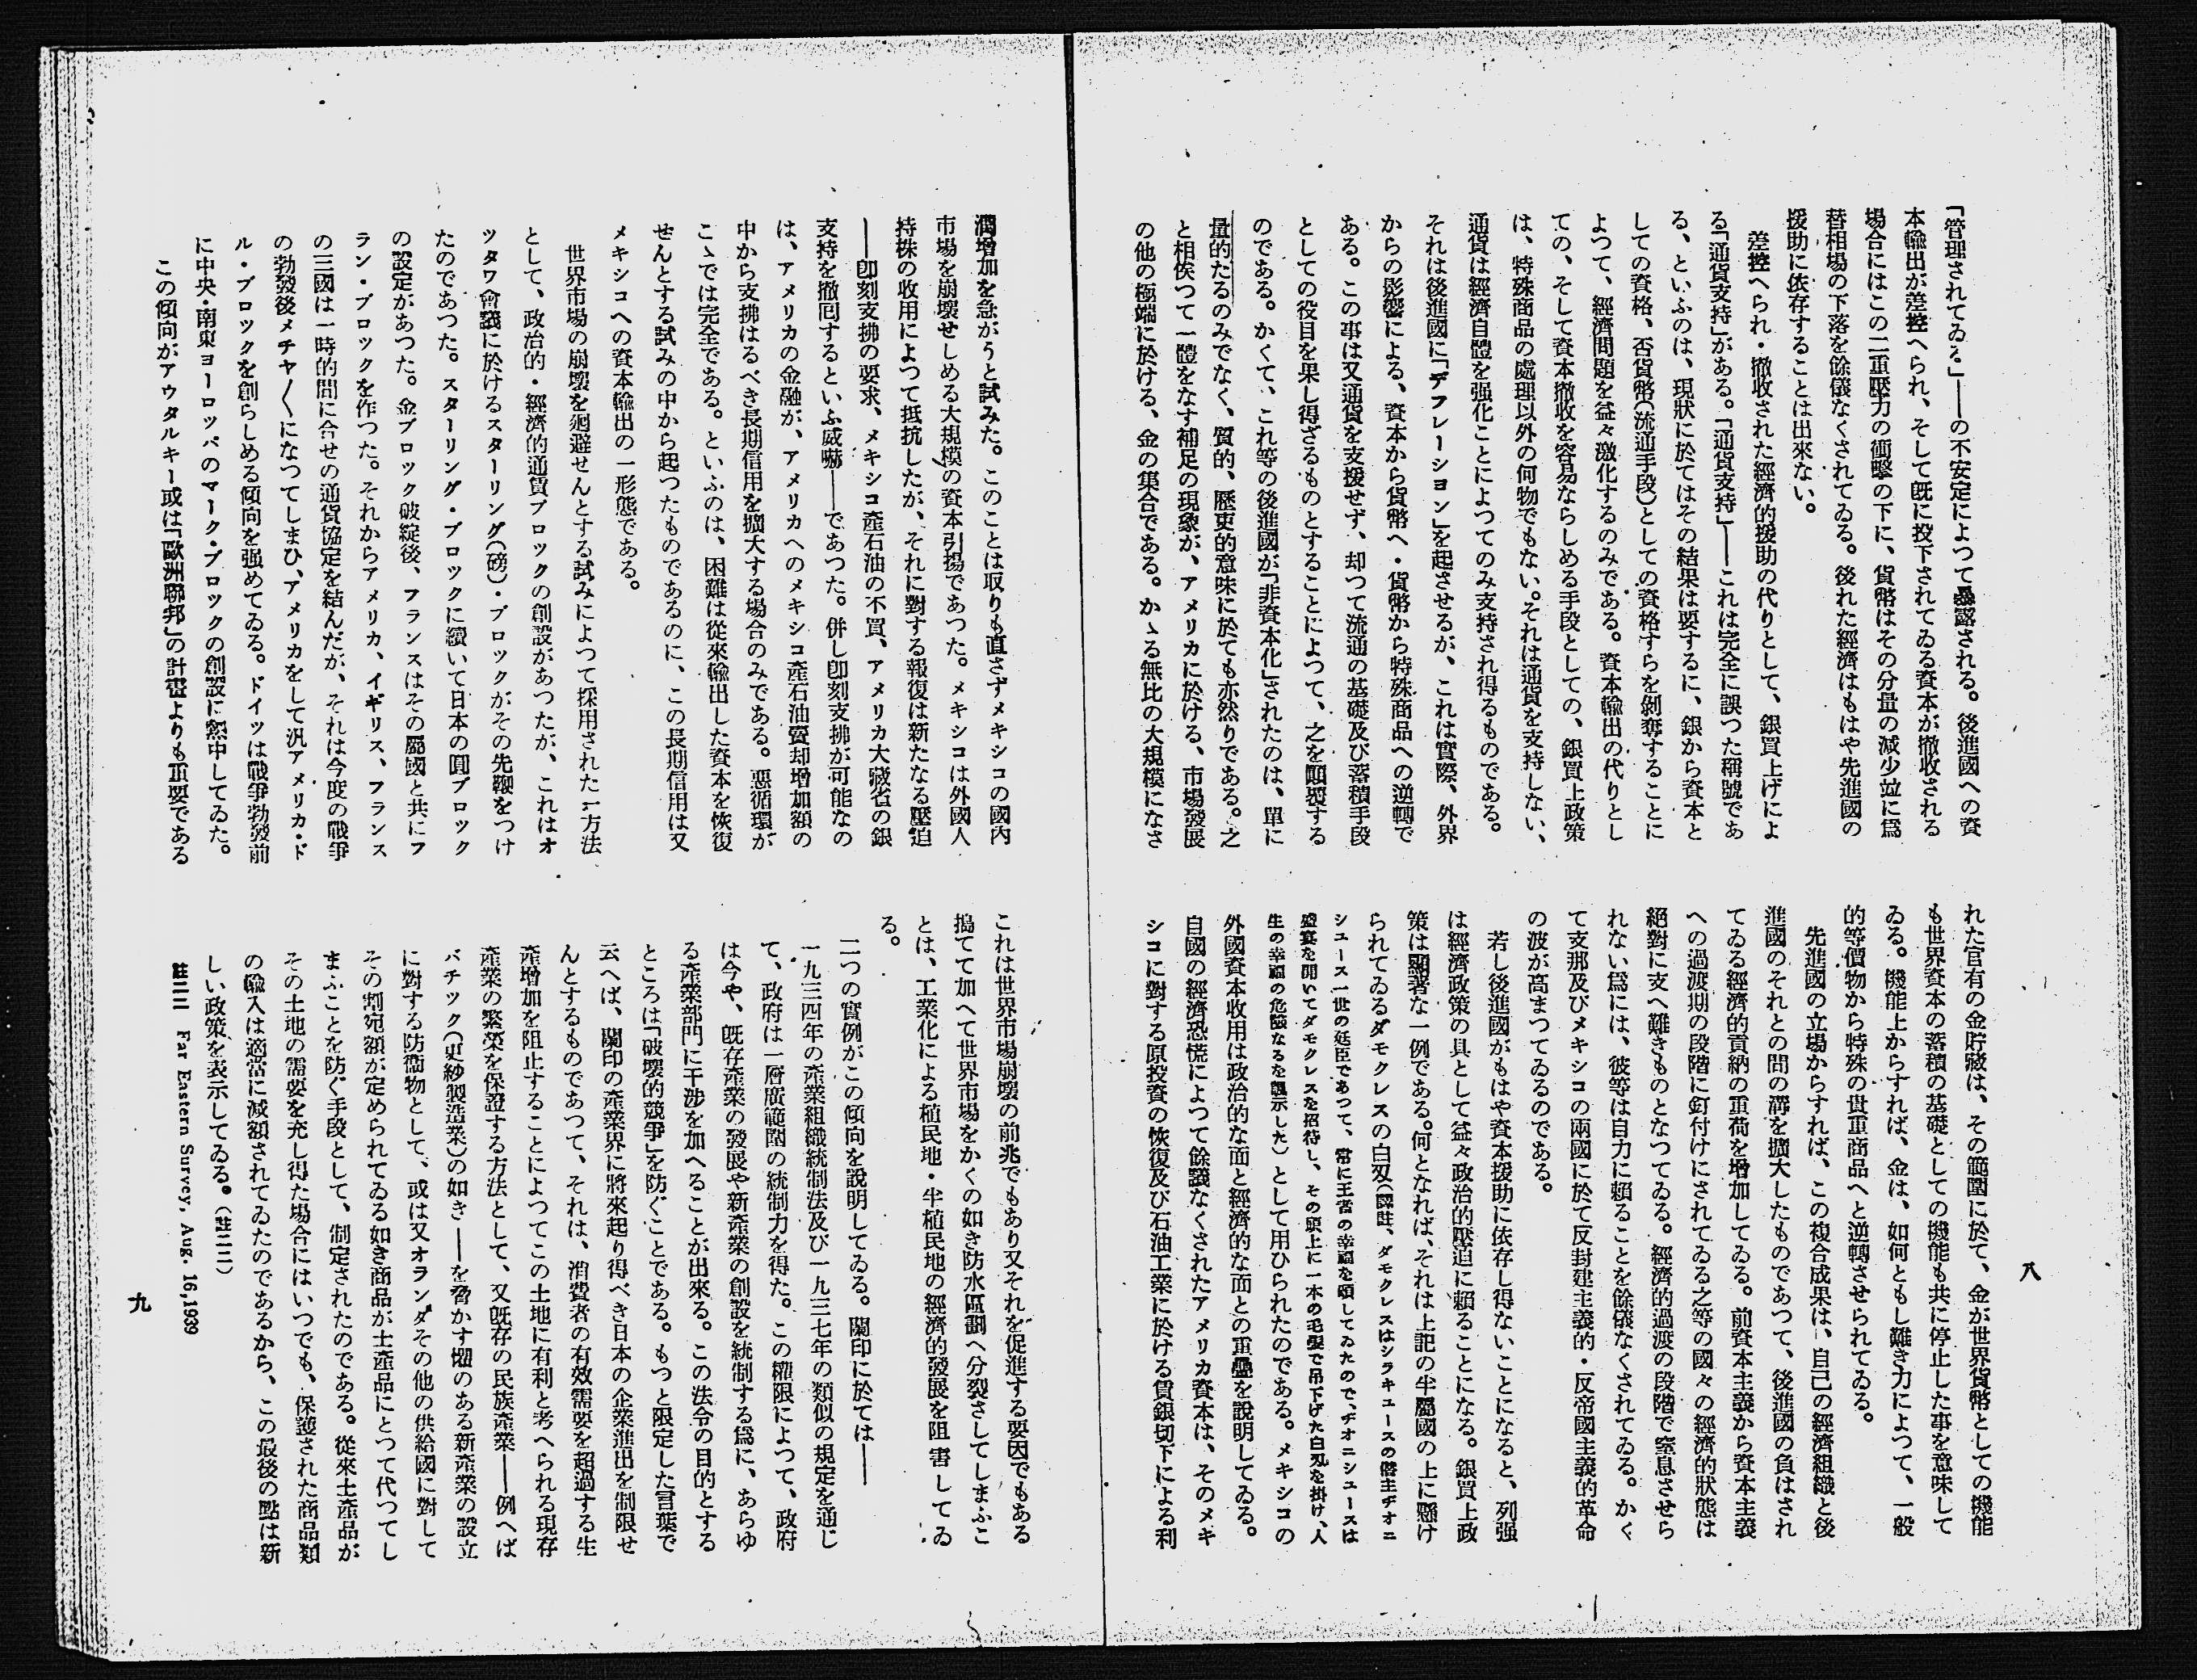 「管理されてゐる」――の不安定によつて暴露される。後進國への資
本輸出が差控へられ、そして既に投下されてゐる資本が撤收される
場合にはこの二重壓力の衝擊の下に、貨幣はその分量の減少竝に爲
替相場の下落を餘儀なくされてゐる。後れた經濟はもはや先進國の
援助に依存することは出來ない。
差控へられ・撤收された經濟的援助の代りとして、銀買上げによ
る「通貨支持」がある。「通貨支持」――これは完全に誤つた稱號であ
る、といふのは、現狀に於てはその結果は要するに、銀から資本と
しての資格、否貨幣(流通手段)としての資格すらを剝奪することに
よつて、經濟問題を益々激化するのみである。資本輸出の代りとし
ての、そして資本撤收を容易ならしめる手段としての、銀買上政策
は、特殊商品の處理以外の何物でもない。それは通貨を支持しない、
通貨は經濟自體を强化ことによつてのみ支持され得るものである。
それは後進國に「デフレーション」を起させるが、これは實際、外界
からの影響による、資本から貨幣へ・貨幣から特殊商品への逆轉で
ある。この事は又通貨を支援せず、却つて流通の基礎及び蓄積手段
としての役目を果し得ざるものとすることによつて、之を顚覆する
のである。かくて、これ等の後進國が「非資本化」されたのは、單に
量的たるのみでなく、質的、歷史的意味に於ても亦然りである。之
と相俟つて一體をなす補足の現象が、アメリカに於ける、市場發展
の他の極端に於ける、金の集合である。かゝる無比の大規模になさ
れた官有の金貯藏は、その範圍に於て、金が世界貨幣としての機能
も世界資本の蓄積の基礎としての機能も共に停止した事を意味して
ゐる。機能上からすれば、金は、如何ともし難き力によつて、一般
的等價物から特殊の貴重商品へと逆轉させられてゐる。
先進國の立場からすれば、この複合成果は、自己の經濟組織と後
進國のそれとの間の溝を擴大したものであつて、後進國の負はされ
てゐる經濟的貢納の重荷を增加してゐる。前資本主義から資本主義
への過渡期の段階に釘付けにされてゐる之等の國々の經濟的狀態は
絕對に支へ難きものとなつてゐる。經濟的過渡の段階で窒息させら
れない爲には、彼等は自力に賴ることを餘儀なくされてゐる。かく
て支那及びメキシコの兩國に於て反封建主義的・反帝國主義的革命
の波が高まつてゐるのである。
若し後進國がもはや資本援助に依存し得ないことになると、列强
は經濟政策の具として益々政治的壓迫に賴ることになる。銀買上政
策は顯著な一例である。何となれば、それは上記の半屬國の上に懸け
られてゐるダモクレスの白刄(譯註、ダモクレスはシラキュースの僭主ヂオニ
シュース一世の廷臣であつて、常に王者の幸福を頌してゐたので、ヂオニシュースは
盛宴を開いてダモクレスを招待し、その頭上に一本の毛髮で吊下げた白刄を掛け、人
生の幸福の危險なるを諷示した)として用ひられたのである。メキシコの
外國資本收用は政治的な面と經濟的な面との重疊を說明してゐる。
自國の經濟恐慌によつて餘議なくされたアメリカ資本は、そのメキ
シコに對する原投資の恢復及び石油工業に於ける賃銀切下による利
八
潤增加を急がうと試みた。このことは取りも直さずメキシコの國內
市場を崩壞せしめる大規模の資本引揚であつた。メキシコは外國人
持株の收用によつて抵抗したが、それに對する報復は新たなる壓迫
――卽刻支拂の要求、メキシコ產石油の不買、アメリカ大藏省の銀
支持を撤囘するといふ威嚇――であつた。併し卽刻支拂が可能なの
は、アメリカの金融が、アメリカへのメキシコ產石油賣却增加額の
中から支拂はるべき長期信用を擴大する場合のみである。惡循環が
こゝでは完全である。といふのは、困難は從來輸出した資本を恢復
せんとする試みの中から起つたものであるのに、この長期信用は又
メキシコへの資本輸出の一形態である。
世界市場の崩壞を廻避せんとする試みによつて採用された一方法
として、政治的・經濟的通貨ブロックの創設があつたが、これはオ
ツタワ會議に於けるスターリング(磅)・ブロックがその先鞭をつけ
たのであつた。スターリング・ブロックに續いて日本の圓ブロック
の設定があつた。金ブロック破綻後、フランスはその屬國と共にフ
ラン・ブロックを作つた。それからアメリカ、イギリス、フランス
の三國は一時的間に合せの通貨協定を結んだが、それは今度の戰爭
の勃發後メチャ〳〵になつてしまひ、アメリカをして汎アメリカ・ド
ル・ブロックを創らしめる傾向を强めてゐる。ドイツは戰爭勃發前
に中央・南東ヨーロッパのマーク・ブロックの創設に熱中してゐた。
この傾向がアウタルキー或は「歐洲聯邦」の計畫よりも重要である
これは世界市場崩壞の前兆でもあり又それを促進する要因でもある
搗てて加へて世界市場をかくの如き防水區劃へ分裂さしてしまふこ
とは、工業化による植民地・半植民地の經濟的發展を阻害してゐ
る。
二つの實例がこの傾向を說明してゐる。蘭印に於ては――
一九三四年の產業組織統制法及び一九三七年の類似の規定を通じ
て、政府は一層廣範圍の統制力を得た。この權限によつて、政府
は今や、旣存產業の發展や新產業の創設を統制する爲に、あらゆ
る產業部門に干涉を加へることが出來る。この法令の目的とする
ところは「破壞的競爭」を防ぐことである。もつと限定した言葉で
云へば、蘭印の產業界に將來起り得べき日本の企業進出を制限せ
んとするものであつて、それは、消費者の有效需要を超過する生
產增加を阻止することによつてこの土地に有利と考へられる現存
產業の繁榮を保證する方法として、又旣存の民族產業――例へば
バチック(更紗製造業)の如き――を脅かす惧のある新產業の設立
に對する防衞物として、或は又オランダその他の供給國に對して
その割宛額が定められてゐる如き商品が土產品にとつて代つてし
まふことを防ぐ手段として、制定されたのである。從來土產品が
その土地の需要を充し得た場合にはいつでも、保護された商品類
の輸入は適當に減額されてゐたのであるから、この最後の點は新
しい政策を表示してゐる。(註三二)
註三二 Far Eastern Survey, Aug. 16, 1939
九